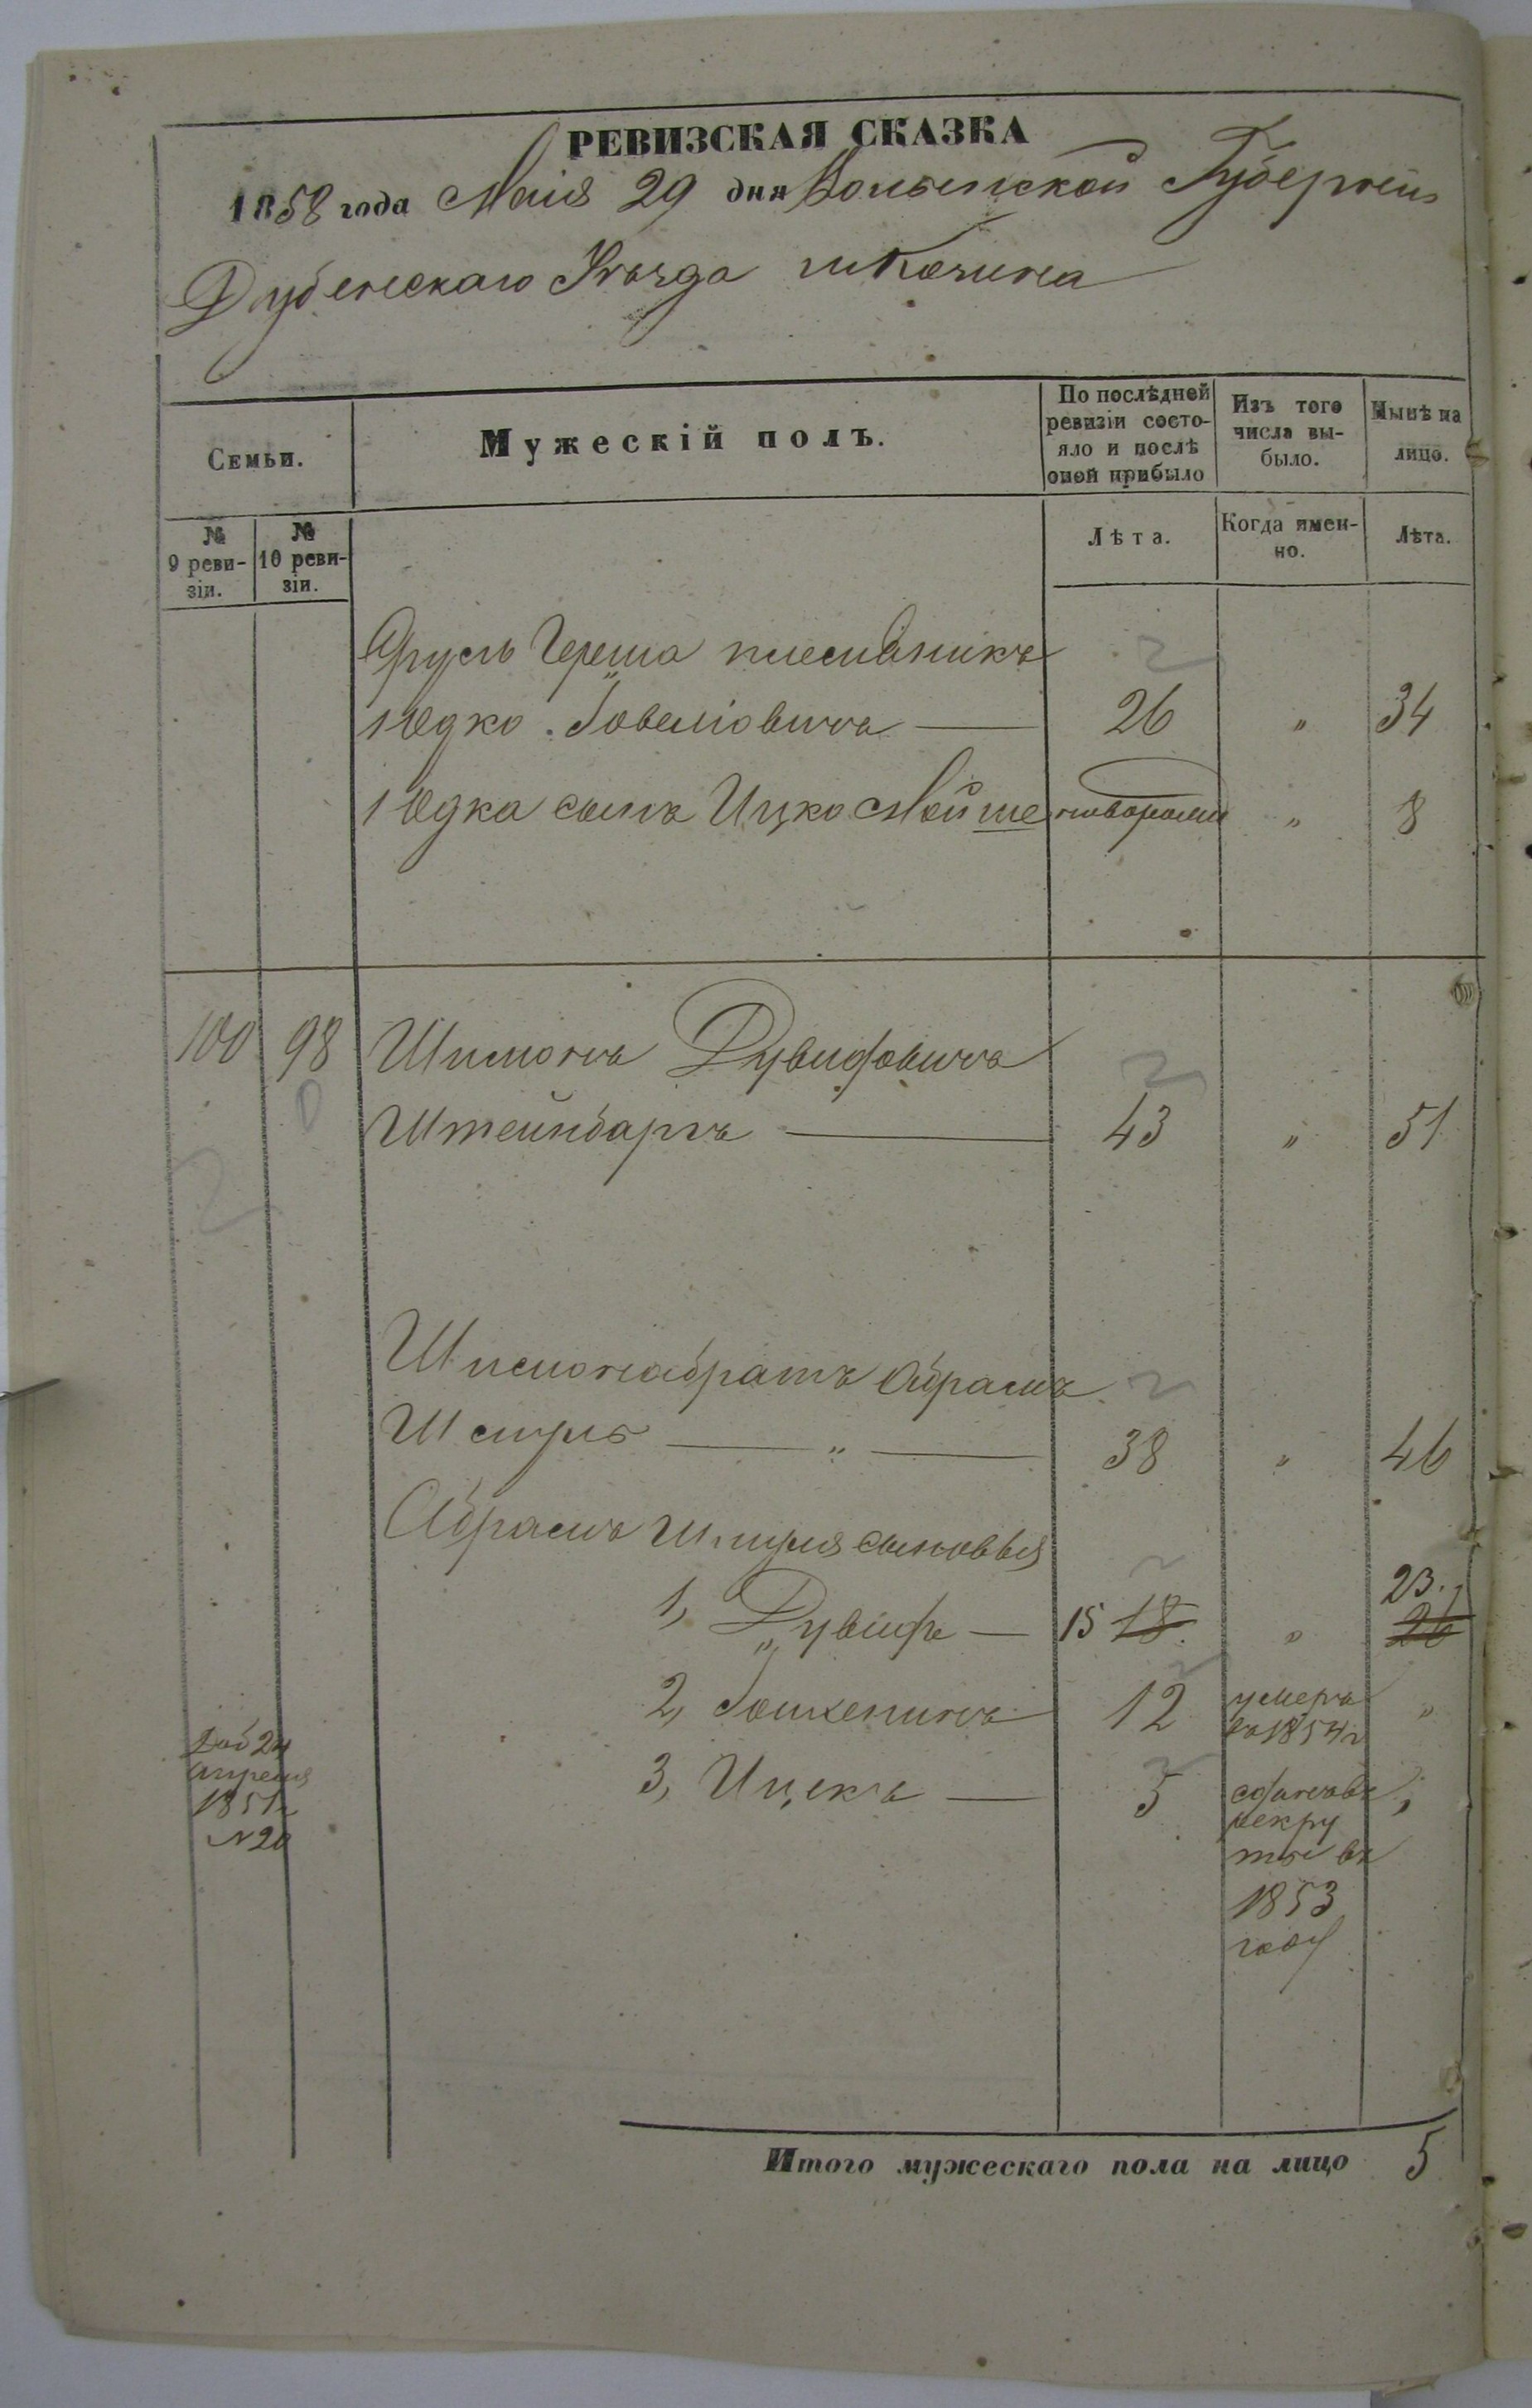 РЕВИЗСКАЯ СКАЗКА
1858 года Маія 29 дня Волынской Губерніи
Дубенскаго Уѣзда м Козина
Семьи.
Мужескій полъ.
По послѣдней ревизіи состояло и послѣ оной прибыло
Изъ того числа выбыло.
Нынѣ на лицо.
№ 9 ревизіи.
№ 10 ревизіи.
Лѣта.
Когда именно.
Лѣта.
Герша племянникъ
Юдко 26 " 34
Юдка сынъ Ицко Мойше новорожд " 8
100 98 Шимонъ Дувидовичъ
Штейнбаргъ 43 " 51
Шимона братъ Абрамъ
Шмуль " 38 " 46
Абрама Шмуля сыновья
1, Дувидъ 15 18 " 23. 26
2, 12 умеръ въ 1854 г "
3, Ицекъ 5 сданъ въ рекруты въ 1853 году "
24 апреля 1851 г N 20
Итого мужескаго пола на лицо 5